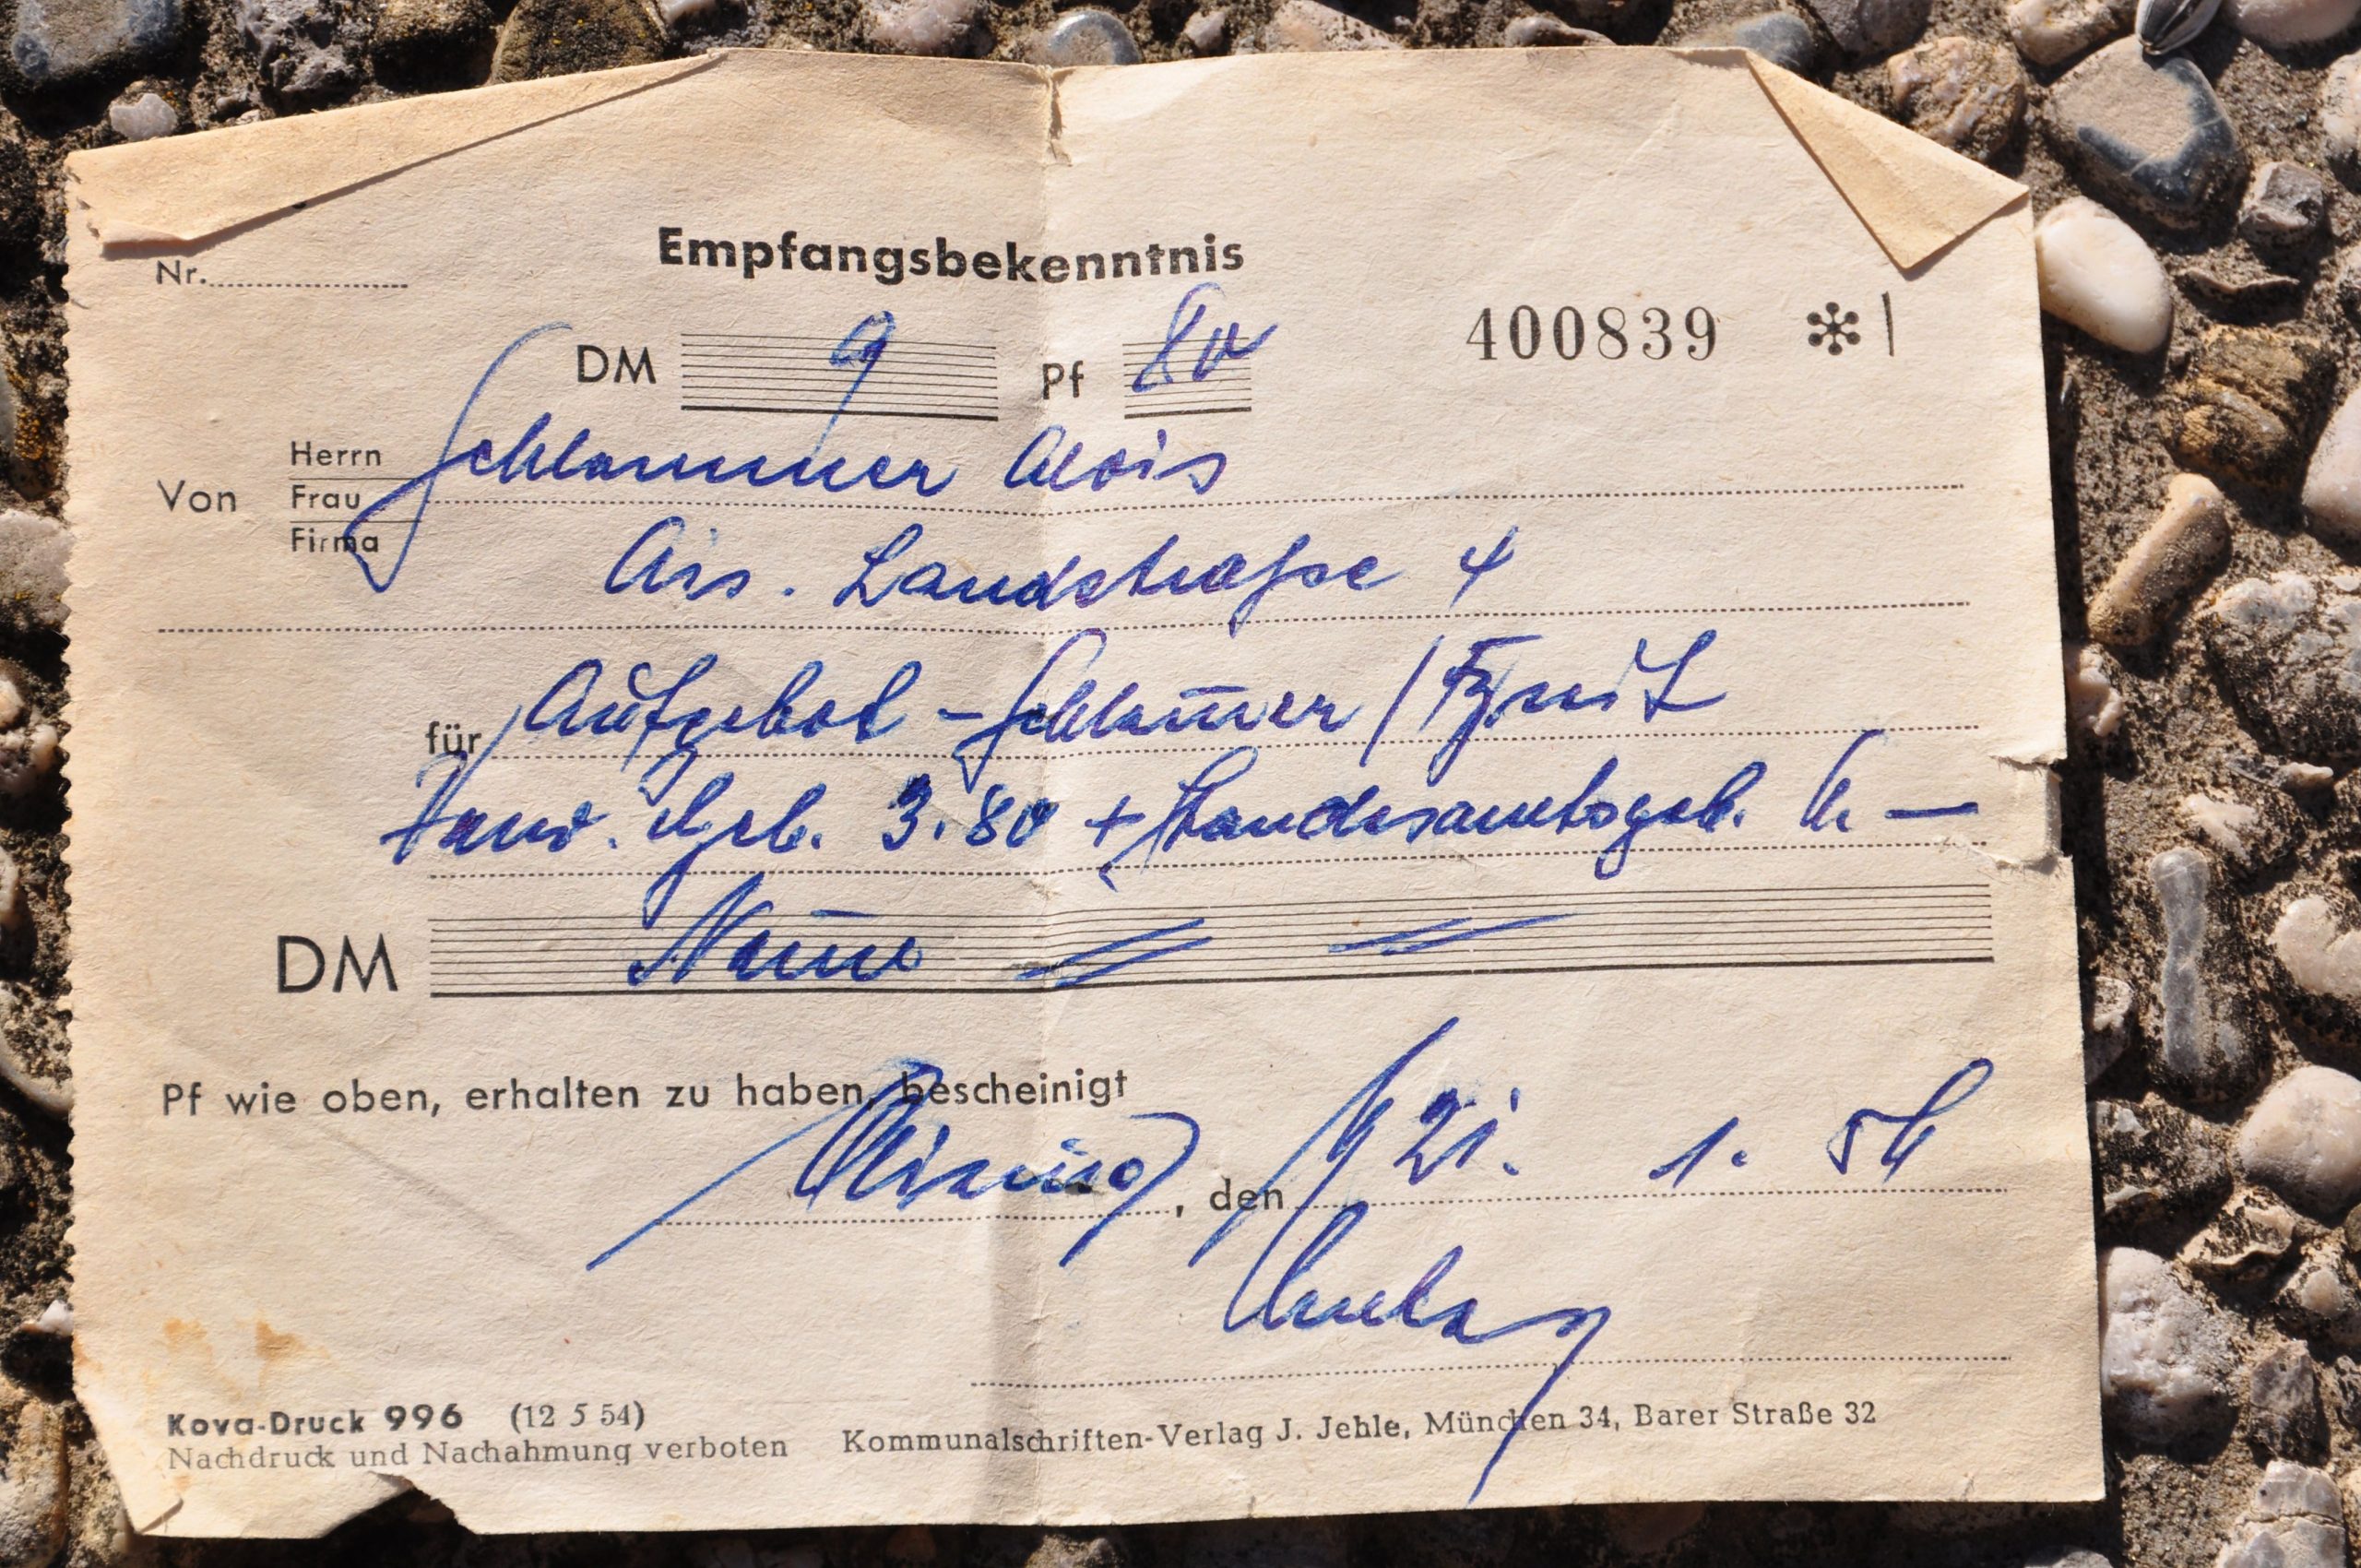 Empfangsbekenntnis
Nr.
400839 *
DM 9 Pf 80
Von Herrn Frau Firma Schlammer Alois
Ais. Landstraße 4
für Aufgebot - Schlam̄er /
3.80 + Standesamtsgeb. 6.—
DM Neun̄
Pf wie oben, erhalten zu haben, bescheinigt
, den 21. 1. 56
Kova-Druck 996 (12 5 54)
Nachdruck und Nachahmung verboten Kommunalschriften-Verlag J. Jehle, München 34, Barer Straße 32